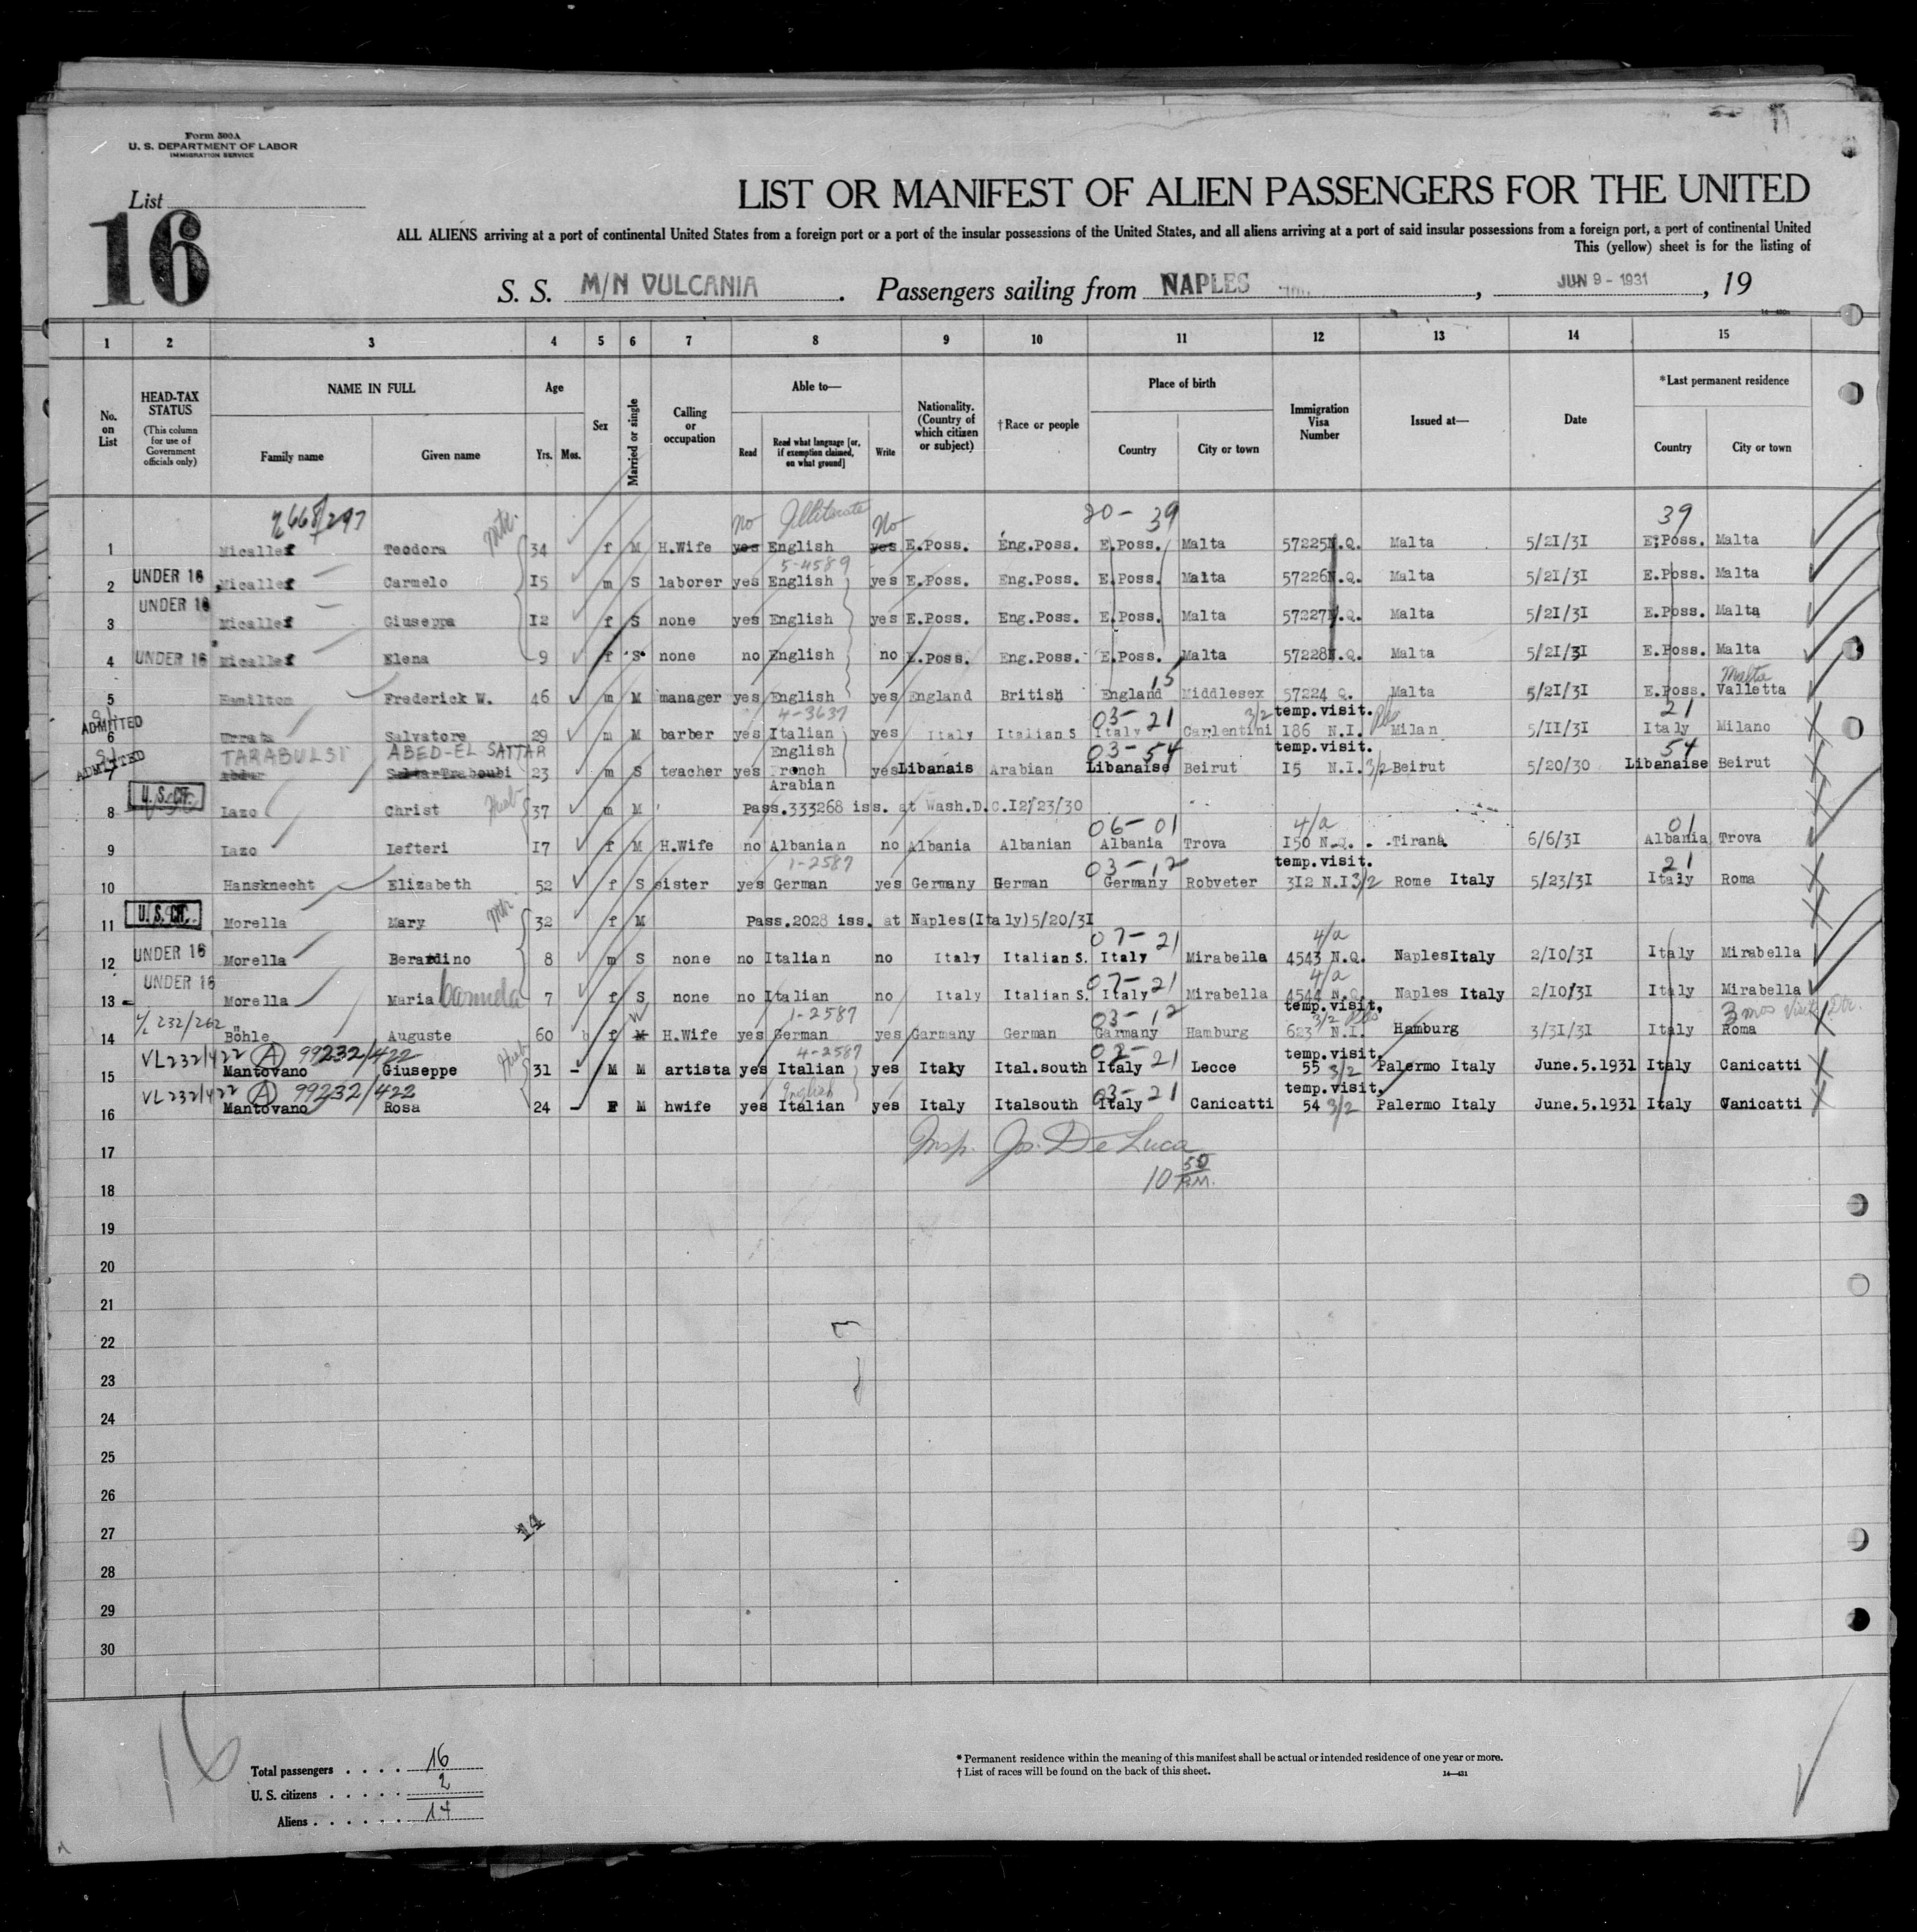 Form 500A
U. S. DEPARTMENT OF LABOR
IMMIGRATION SERVICE
List
16
LIST OR MANIFEST OF ALIEN PASSENGERS FOR THE UNITED
ALL ALIENS arriving at a port of continental United States from a foreign port or a port of the insular possessions of the United States, and all aliens arriving at a port of said insular possessions from a foreign port, a port of continental United
This (yellow) sheet is for the listing of
S. S. M/N VULCANIA . Passengers sailing from NAPLES , JUN 9 - 1931 , 19
1 2 3 4 5 6 7 8 9 10 11 12 13 14 15
No. on List
HEAD-TAX STATUS (This column for use of Government officials only)
NAME IN FULL Family name Given name
Age Yrs. Mos.
Sex
Married or single
Calling or occupation
Able to— Read Read what language [or, if exemption claimed, on what ground] Write
Nationality. (Country of which citizen or subject)
†Race or people
Place of birth Country City or town
Immigration Visa Number
Issued at—
Date
*Last permanent residence Country City or town
no Illiterate No 20- 39 39
1 Micallef Teodora 34 f M H.Wife yes English yes E.Poss. Eng.Poss. E.Poss. Malta 57225N.Q. Malta 5/21/31 E.Poss. Malta
5-4589
2 UNDER 16 Micallef Carmelo 15 m S laborer yes English yes E.Poss. Eng.Poss. E.Poss. Malta 57226N.Q. Malta 5/21/31 E.Poss. Malta
3 UNDER 16 Micallef Giuseppa 12 f S none yes English yes E.Poss. Eng.Poss. E.Poss. Malta 57227N.Q. Malta 5/21/31 E.Poss. Malta
4 UNDER 16 Micallef Elena 9 f S none no English no E.Poss. Eng.Poss. E.Poss. Malta 57228N.Q. Malta 5/21/31 E.Poss. Malta
15 Malta
5 Hamilton Frederick W. 46 m M manager yes English yes England British England Middlesex 57224 Q. Malta 5/21/31 E.Poss. Valletta
ADMITTED 4-3637 03- 21 3/2 temp.visit. 21
6 Urrata Salvatore 29 m M barber yes Italian yes Italy Italian S Italy Carlentini 186 N.I. Milan 5/11/31 Italy Milano
ADMITTED TARABULSI ABED-EL SATTAR English 03-54 temp.visit. 54
7 Abdur Sattar Traboubi 23 m S teacher yes French yes Libanais Arabian Libanaise Beirut 15 N.I. 3/2 Beirut 5/20/30 Libanaise Beirut
Arabian
8 U. S. CIT. Lazo Christ 37 m M Pass.333268 iss. at Wash.D.C.12/23/30
06- 01 4/a 01
9 Lazo Lefteri 17 f M H.Wife no Albanian no Albania Albanian Albania Trova 150 N.Q. Tirana 6/6/31 Albania Trova
1-2587 03-12 temp.visit. 21
10 Hansknecht Elizabeth 52 f S sister yes German yes Germany German Germany Robveter 312 N.I 3/2 Rome Italy 5/23/31 Italy Roma
11 U. S. CIT. Morella Mary 32 f M Pass.2028 iss. at Naples(Italy)5/20/31
07- 21 4/a
12 UNDER 16 Morella Berardino 8 m S none no Italian no Italy Italian S. Italy Mirabella 4543 N.Q. Naples Italy 2/10/31 Italy Mirabella
07-21 4/a
13 UNDER 16 Morella Maria 7 f S none no Italian no Italy Italian S. Italy Mirabella 4544 N.Q. Naples Italy 2/10/31 Italy Mirabella
1-2587 W 03-12 temp.visit. 3/2 3 mos visit
14 Böhle Auguste 60 f M H.Wife yes German yes Garmany German Garmany Hamburg 623 N.I. Hamburg 3/31/31 Italy Roma
VL232/422 A 99232/422 4-2587 02- 21 temp.visit.
15 Mantovano Giuseppe 31 - M M artista yes Italian yes Italy Ital.south Italy Lecce 55 3/2 Palermo Italy June.5.1931 Italy Canicatti
VL232/422 A 99232/422 English 03-21 temp.visit.
16 Mantovano Rosa 24 - F M hwife yes Italian yes Italy Italsouth Italy Canicatti 54 3/2 Palermo Italy June.5.1931 Italy Canicatti
17 Insp. Jos. De Luca
10 50 P.M.
18
19
20
21
22
23
24
25
26
27
14
28
29
30
16
Total passengers . . . . 16
U. S. citizens . . . . . 2
Aliens . . . . . . 14
* Permanent residence within the meaning of this manifest shall be actual or intended residence of one year or more.
† List of races will be found on the back of this sheet.
14—431